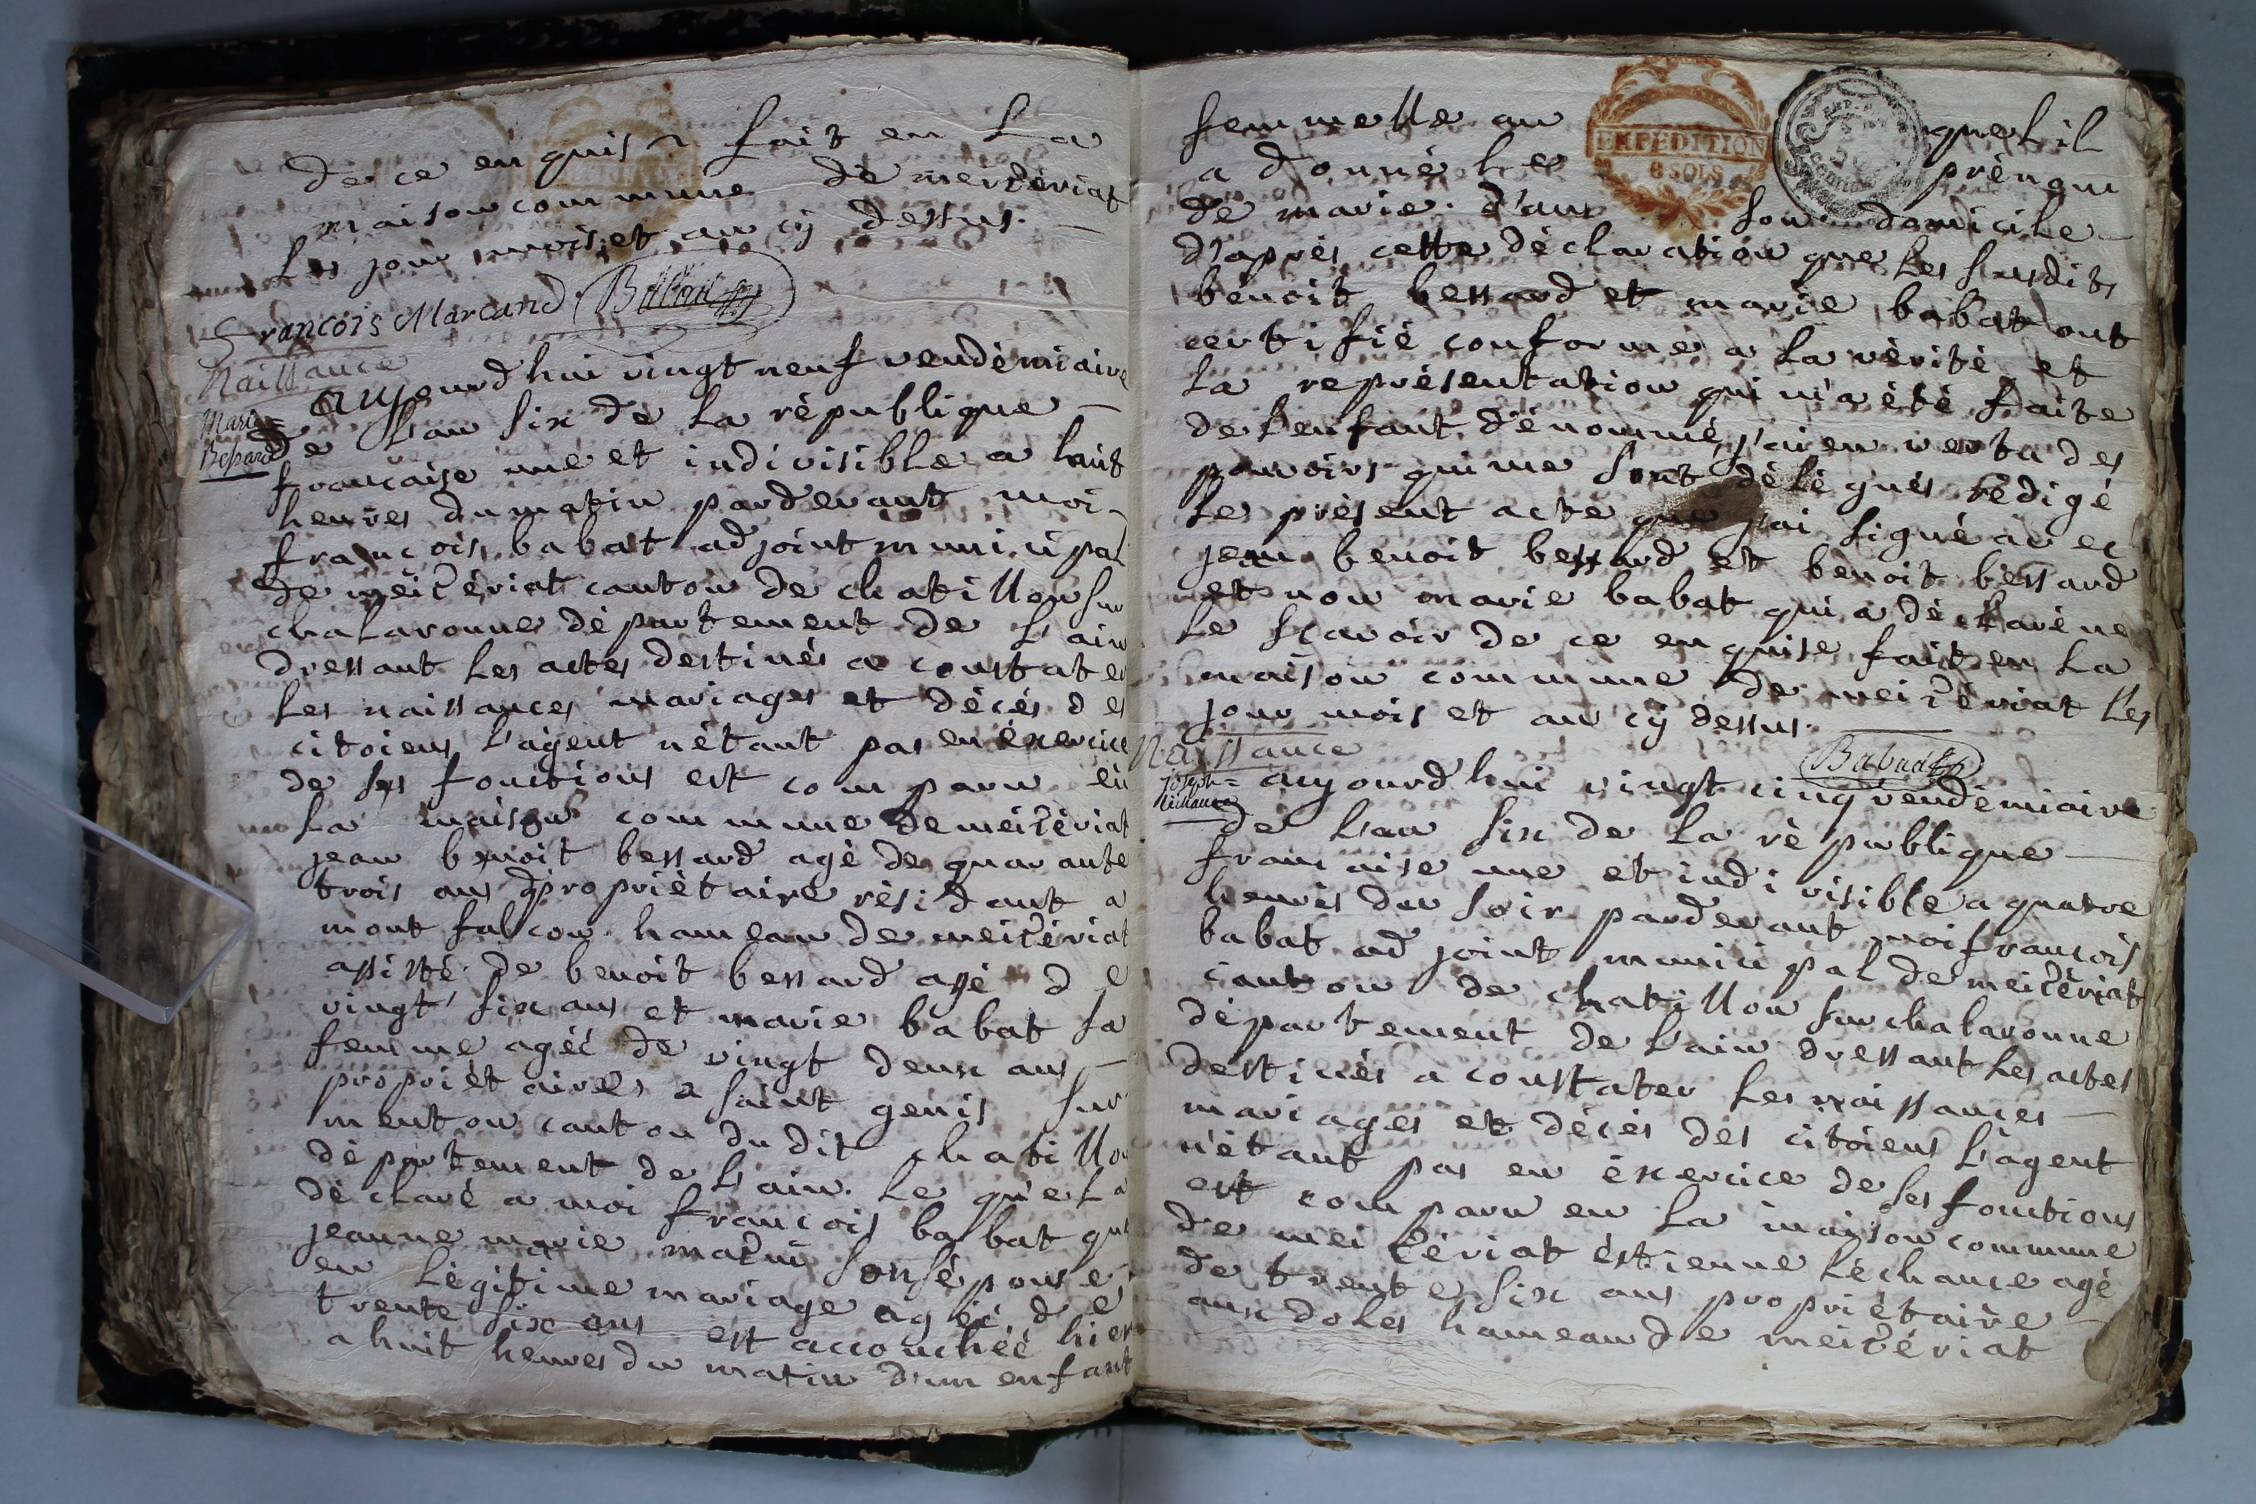 de ce enquis fait en La
maison commune de meizériat
Les jour mois et an cÿ dessus.
François Marcand Babad
Naissance
aujourd'hui vingt neuf vendémiaire
Marie
Bessard
de L'an six de La république
francaise une et indivisible a huit
heures du matin pardevant moi
francois babat adjoint municipal
de meizériat canton de chatillon sur
chalaronne département de L'ain
dressant Les actes destinés a constater
Les naissances mariages et décés des
citoiens L'agent n'étant pas en éxercice
de ses fonctions est comparu en
La maison commune de meizériat
jean benoit bessard agé de quarante
trois ans propriétaire résidant a
mont falcon hameau de meizériat
assisté de benoit bessard agé de
vingt six ans et marie babat sa
femme agéé de vingt deux ans
propriétaires a saint genis sur
menton canton du dit chatillon
département de L'ain. Le quel a
déclaré a moi francois babat que
jeanne marie son épouse
en Légitime mariage agéé de
trente six ans est accouchéé hier
a huit heures du matin d'un enfant
femmelle au quel il
EXPEDITION
8 SOLS
a donné Le prénom
de marie. dans son domicile
d'aprés cette déclaration que Les susdits
benoit bessard et marie babat ont
certifié conforme a La vérité et
La représentation qui m'a été faite
de L'enfant dénommé, j'ai en vertu des
pouvoirs qui me sont délégués rédigé
Le présent acte que j'ai signé avec
jean benoit bessard et benoit bessard
et non marie babat qui a déclaré ne
Le scavoir de ce enquise fait en La
maison commune de meizériat Les
jour mois et an cÿ dessus.
Babad
Naissance
joseph
Léchance
aujourd'hui vingt cinq vendémiaire
de L'an six de La république
francaise une et indivisible a quatre
heures du soir pardevant moi francois
babat adjoint municipal de meizériat
canton de chatillon sur chalaronne
département de L'ain dressant Les actes
destinés a constater Les naissances
mariages et décés des citoiens L'agent
n'étant pas en éxercice de ses fonctions
est comparu en La maison commune
de meizériat éstienne Léchance agé
de trente six ans propriétaire
aux doles hameau de meizériat